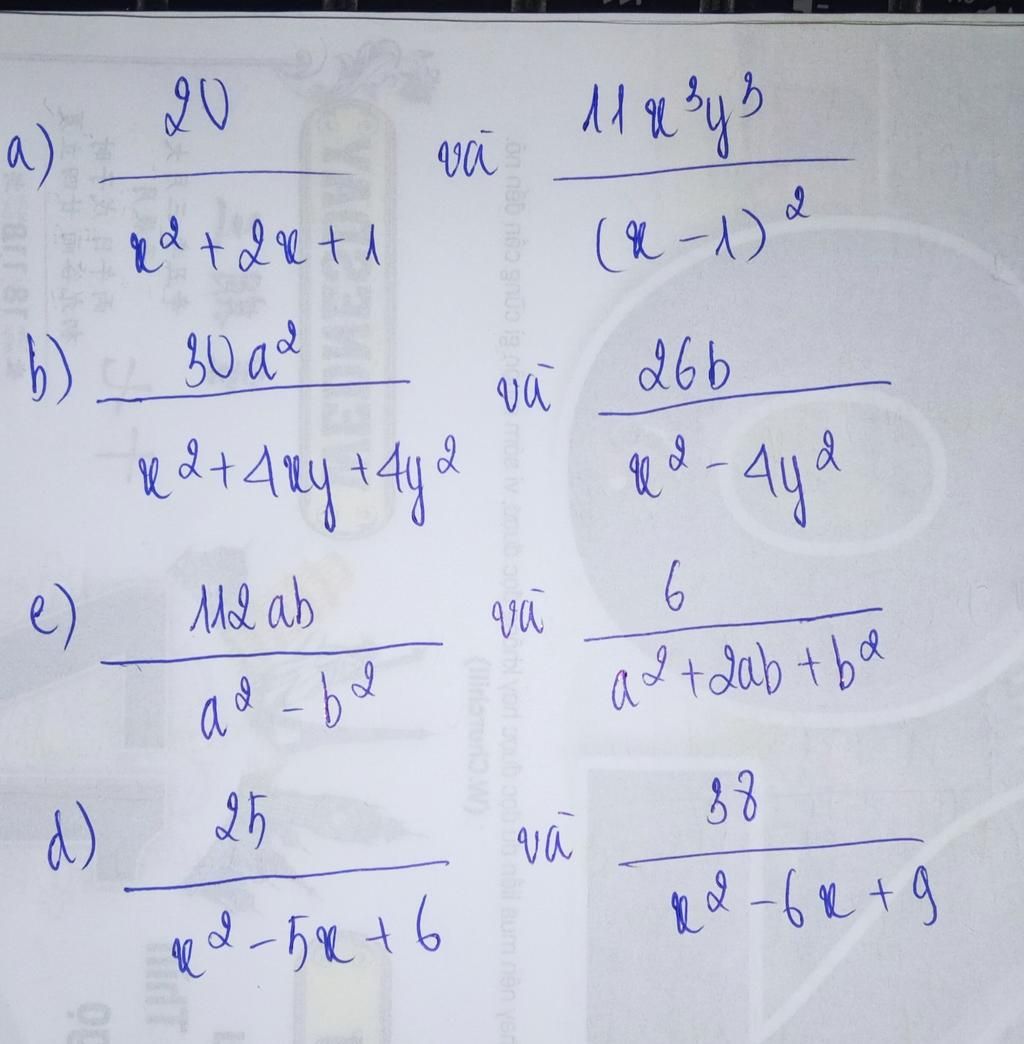 a) 20 / x² + 2x + 1 và 11x³y³ / (x - 1)²
b) 30a² / x² + 4xy + 4y² và 26b / x² - 4y²
c) 112ab / a² - b² và 6 / a² + 2ab + b²
d) 25 / x² - 5x + 6 và 38 / x² - 6x + 9